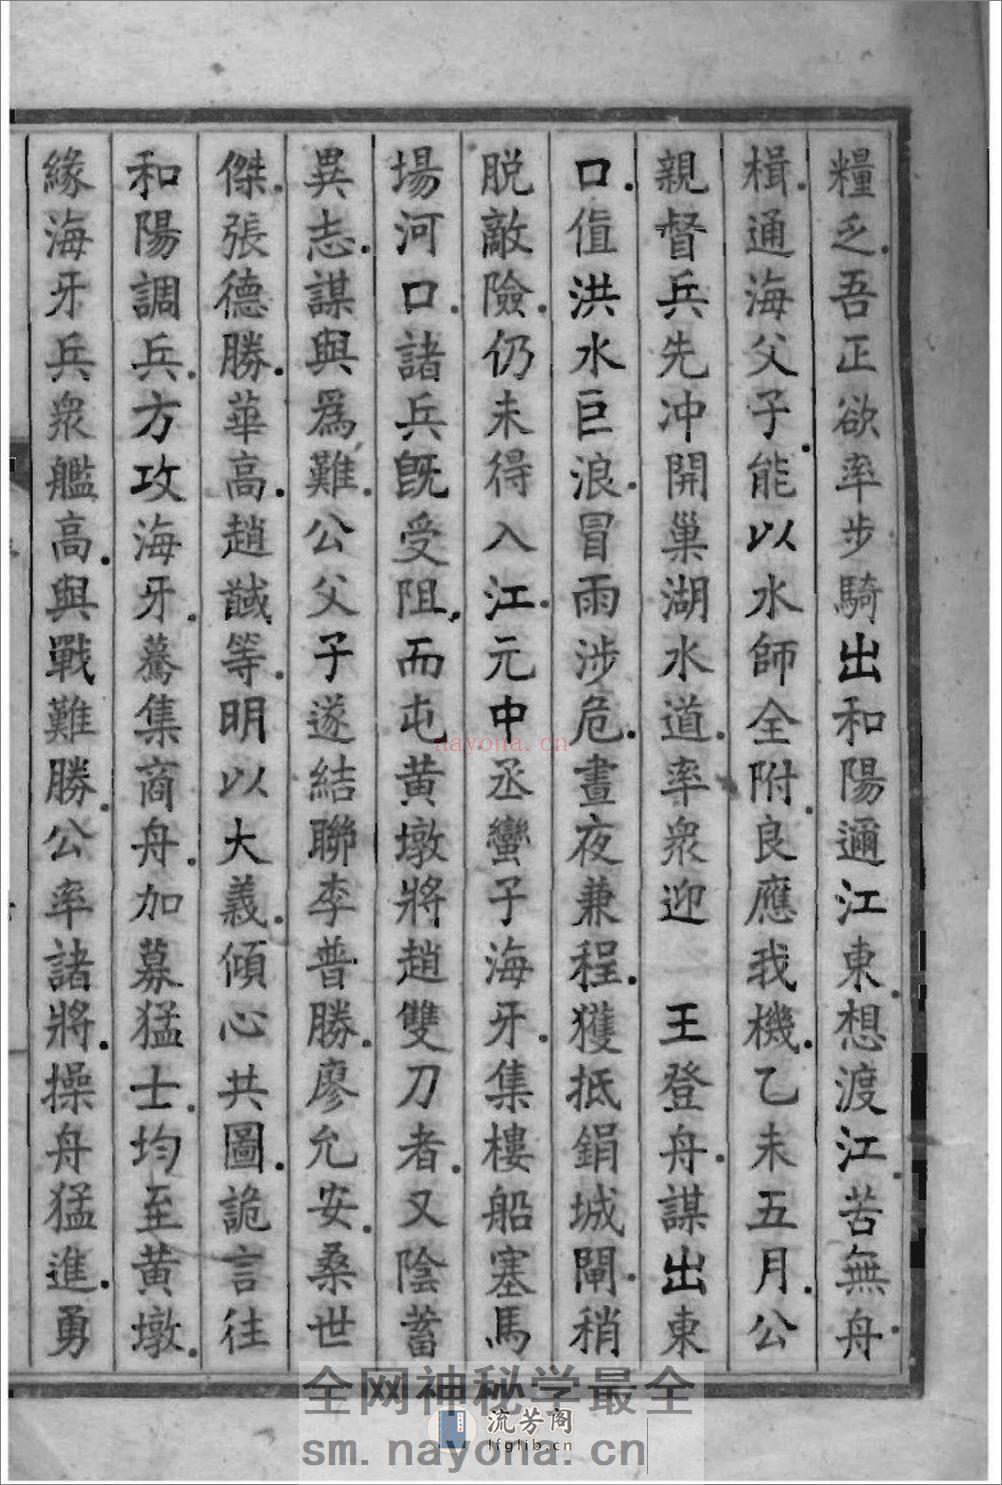 糧乏.吾正欲率步騎出和陽邇江東.想渡江.苦無舟
楫.通海父子.能以水師全附.良應我機.乙未五月.公
親督兵先冲開巢湖水道.率衆迎　王登舟.謀出東
口.值洪水巨浪.冒雨涉危.晝夜兼程.獲抵銅城閘.稍
脱敵險.仍未得入江.元中丞蠻子海牙.集樓船塞馬
場河口.諸兵旣受阻.而屯黄墩將趙雙刀者.又陰蓄
異志.謀與爲難.公父子遂結聯李普勝.廖允安.桑世
傑.張德勝.華高.趙馘等.明以大義.傾心共圖.詭言往
和陽調兵.方攻海牙.驀集商舟.加募猛士.均至黄墩.
緣海牙兵衆艦高.與戰難勝.公率諸將.操舟猛進.勇
nayona.cn
全网神秘学最全
流芳阁
lfglib.cn
sm.nayona.cn